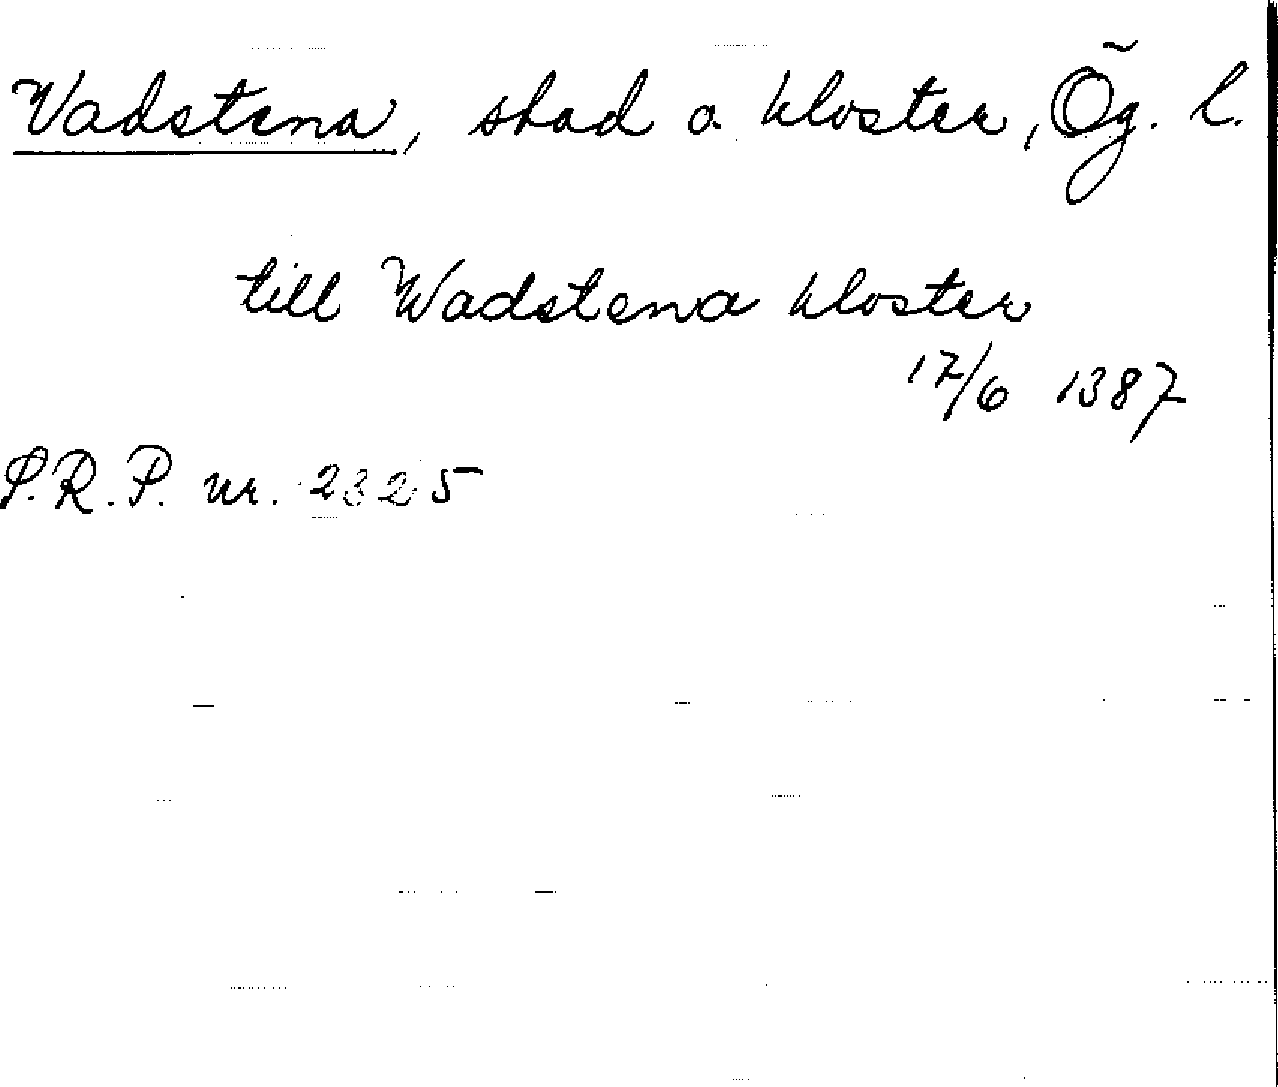 Vadstena, stad o. kloster, Ög. l.
till Wadstena kloster
17/6 1387
S.R.P. nr. 2325